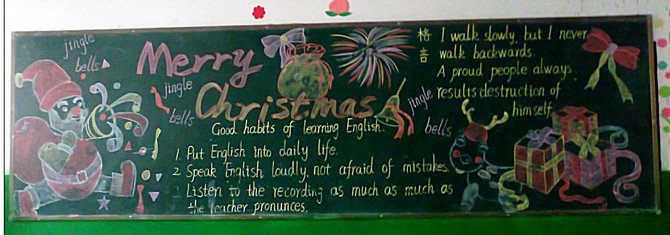 jingle
bells
Merry
Christmas
jingle
bells
jingle
bells
Good habits of learning English.
1. Put English into daily life.
2 Speak English loudly, not afraid of mistakes.
3 Listen to the recording as much as much as
the teacher pronunces.
格
言
I walk slowly, but I never
walk backwards.
A proud people always
results destruction of
himself.